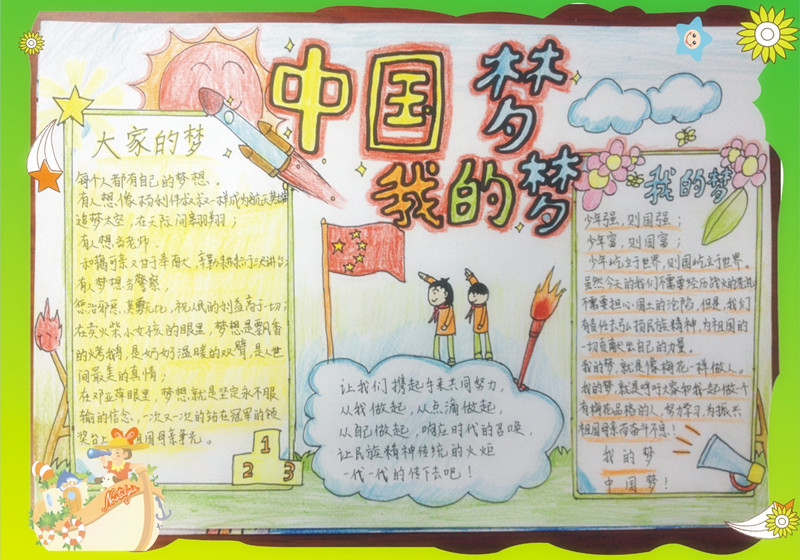 中国梦
我的梦
大家的梦
每个人都有自己的梦想.
有人想像杨利伟叔叔一样成为航天英雄
追梦太空,在天际间翱翔;
有人想当老师.
和蔼可亲又甘于奉献,
有人梦想当警察
惩治邪恶,英勇无比,视人民的利益高于一切;
在卖火柴小女孩的眼里,梦想是飘香
的烤鹅,是奶奶温暖的双臂,是人世
间最美的真情;
在邓亚萍眼里,梦想就是坚定永不服
输的信念,一次又一次的站在冠军的领
奖台上 国母亲争光。
1
2 3
让我们携起手来共同努力,
从我做起,从点滴做起,
从自己做起,响应时代的召唤,
让民族精神传统的火炬
一代一代的传下去吧!
我的梦
少年强,则国强;
少年富,则国富;
少年屹立于世界,则国屹立于世界。
虽然今天的我们不需要经历战火的洗礼
不需要担心国土的沦陷,但是,我们
有责任去弘扬民族精神,为祖国的
一切贡献出自己的力量。
我的梦,就是像梅花一样做人。
我的梦,就是呼吁大家和我一起做个
有梅花品格的人,努力学习,为振兴
祖国母亲而奋斗不息!
我的梦
中国梦!